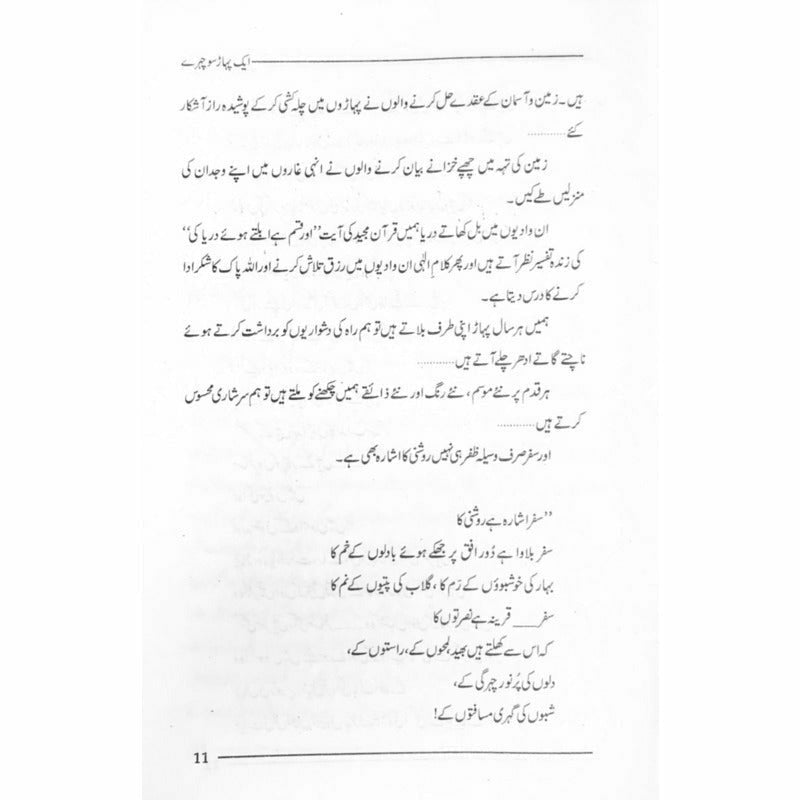 ایک پہاڑ سو چہرے
ہیں۔ زمین و آسمان کے عقدے حل کرنے والوں نے پہاڑوں میں چلہ کشی کر کے پوشیدہ راز آشکار
کئے............
زمین کی تہہ میں چھپے خزانے بیان کرنے والوں نے انہی غاروں میں اپنے وجدان کی
منزلیں طے کیں۔
ان وادیوں میں بل کھاتے دریا ہمیں قرآن مجید کی آیت ”اور قسم ہے ابلتے ہوئے دریا کی“
کی زندہ تفسیر نظر آتے ہیں اور پھر کلام الٰہی ان وادیوں میں رزق تلاش کرنے اور اللہ پاک کا شکر ادا
کرنے کا درس دیتا ہے۔
ہمیں ہر سال پہاڑ اپنی طرف بلاتے ہیں تو ہم راہ کی دشواریوں کو برداشت کرتے ہوئے
ناچتے گاتے ادھر چلے آتے ہیں............
ہر قدم پر نئے موسم، نئے رنگ اور نئے ذائقے ہمیں چکھنے کو ملتے ہیں تو ہم سرشاری محسوس
کرتے ہیں............
اور سفر صرف وسیلہ ظفر ہی نہیں روشنی کا اشارہ بھی ہے۔
”سفر اشارہ ہے روشنی کا
سفر بلاوا ہے دُور افق پر جھکے ہوئے بادلوں کے خم کا
بہار کی خوشبوؤں کے رَم کا، گلاب کی پتیوں کے نم کا
سفر___ قرینہ ہے نصرتوں کا
کہ اس سے کھلتے ہیں بھید لمحوں کے، راستوں کے،
دلوں کی پُر نور چہرگی کے،
شبوں کی گہری مسافتوں کے!
11